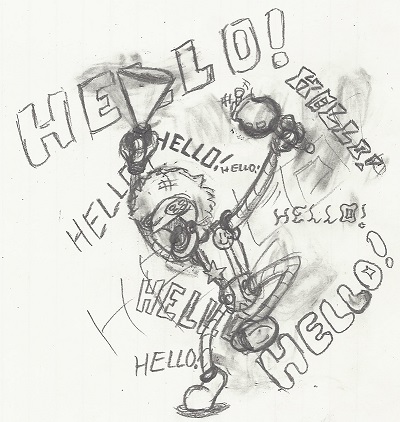 HELLO!
HELLO!
HELLO!
HELLO!
HELLO
HELLO!
HELLO!
HELLO!